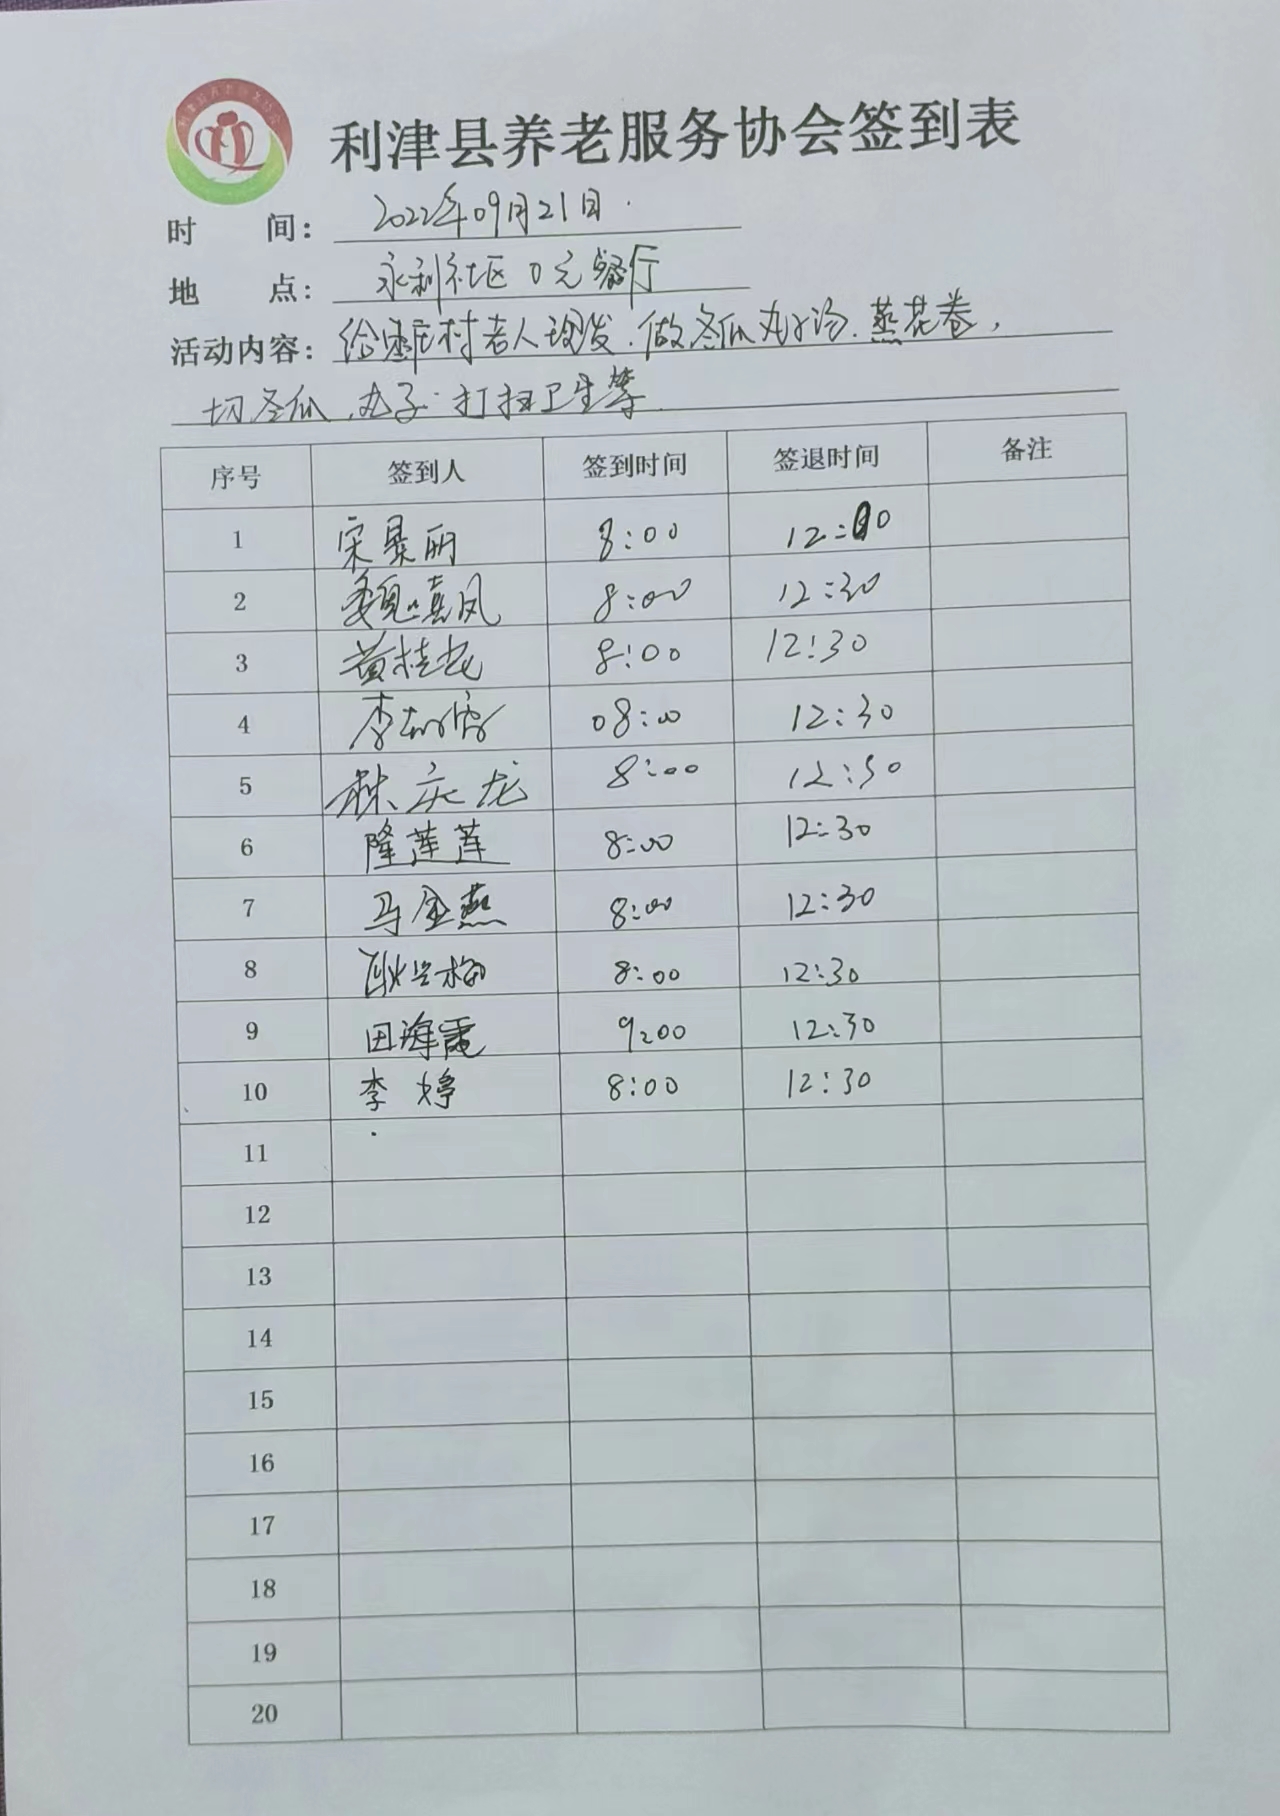 利津县养老服务协会签到表
时 间: 2022年09月21日
地 点: 永利社区0元餐厅
活动内容: 给 村老人理发.做冬瓜丸子汤.蒸花卷,
切冬瓜.丸子.打扫卫生等.
序号 签到人 签到时间 签退时间 备注
1 宋景丽 8:00 12:
2 魏嘻凤 8:00 12:30
3 黄桂花 8:00 12:30
4 李 08:00 12:30
5 林庆龙 8:00 12:30
6 隆莲莲 8:00 12:30
7 马金燕 8:00 12:30
8 耿兴梅 8:00 12:30
9 田海霞 9:00 12:30
10 李婷 8:00 12:30
11
12
13
14
15
16
17
18
19
20